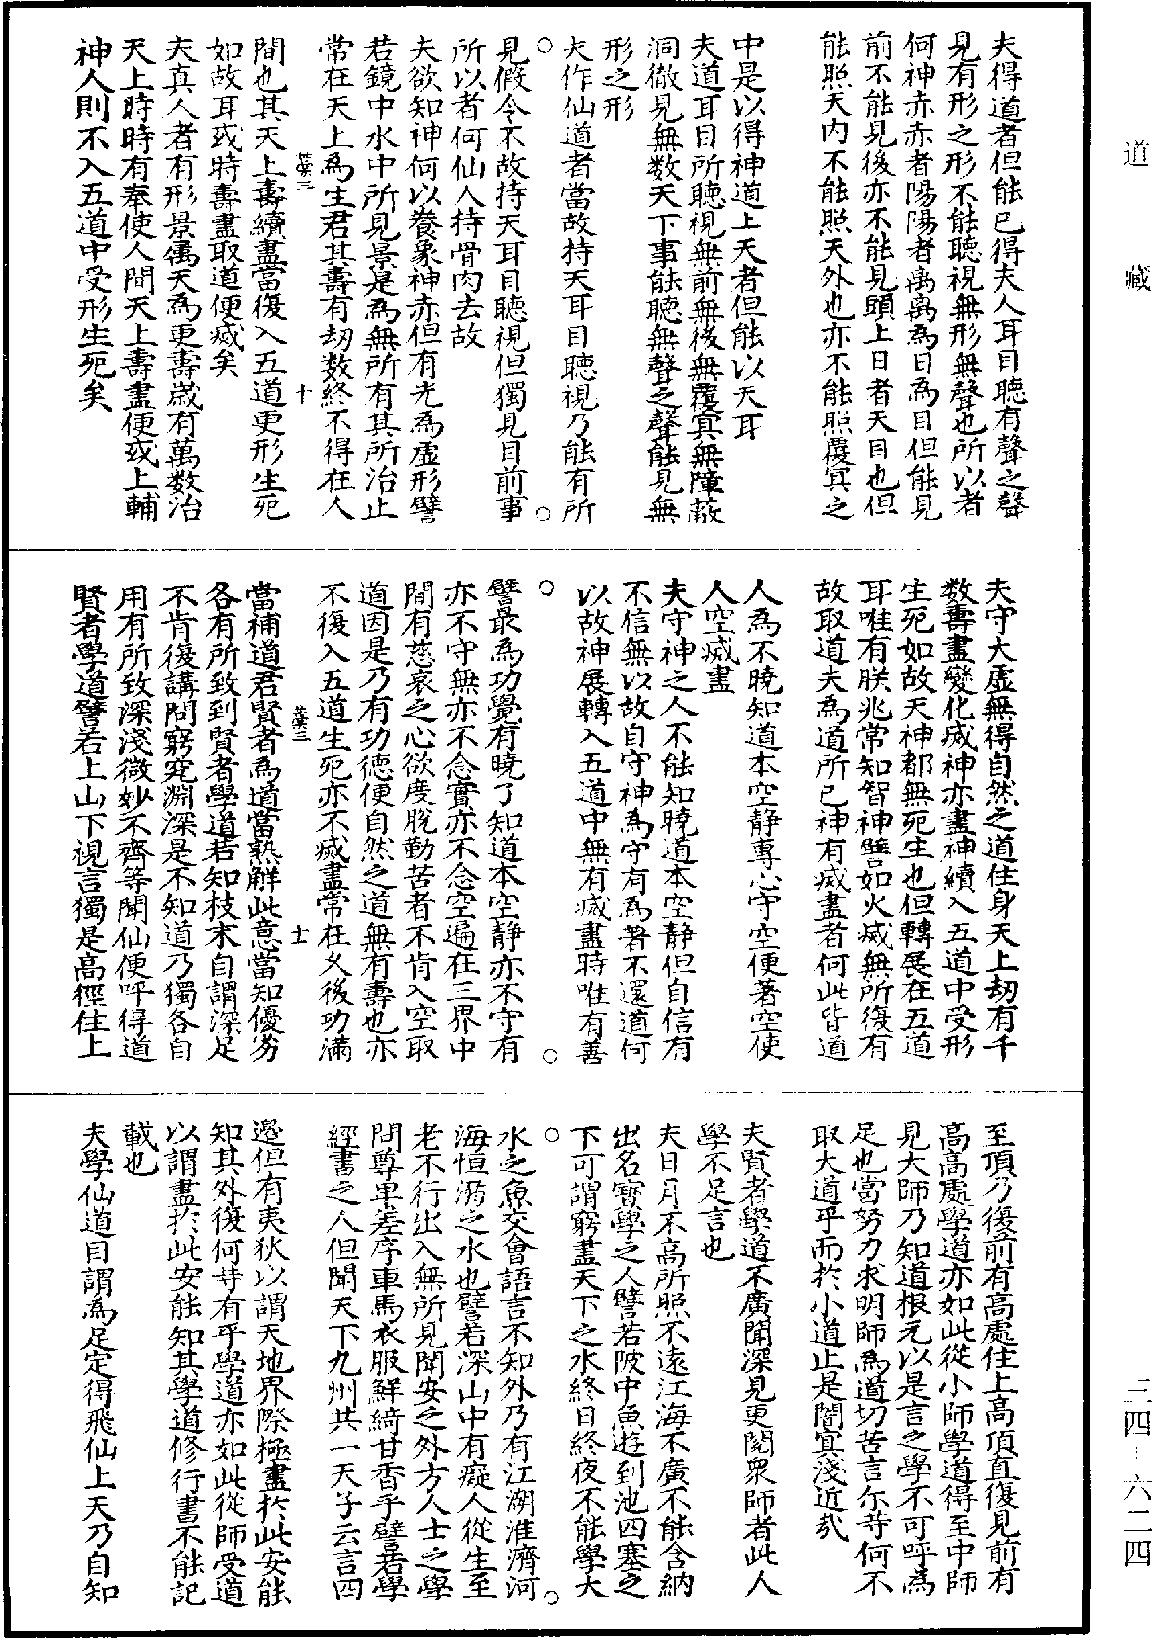 道藏
三四—六二四
夫得道者但能已得夫人耳目聽有聲之聲
見有形之形不能聽視無形無聲也所以者
何神赤赤者陽陽者离离為日為目但能見
前不能見後亦不能見頭上日者天目也但
能照天內不能照天外也亦不能照覆冥之
中是以得神道上天者但能以天耳
夫道耳目所聽視無前無後無覆冥無障蔽
洞徹見無數天下事能聽無聲之聲能見無
形之形
夫作仙道者當故持天耳目聽視乃能有所
見假令不故持天耳目聽視但獨見目前事
所以者何仙人持骨肉去故
夫欲知神何以養象神赤但有光為虛形譬
若鏡中水中所見景是為無所有其所治止
常在天上為生君其壽有劫數終不得在人
間也其天上壽續盡當復入五道更形生死
如故耳或時壽盡取道便滅矣
夫真人者有形景屬天為更壽歲有萬數治
天上時時有奉使人間天上壽盡便或上輔
神人則不入五道中受形生死矣
夫守大虛無得自然之道住身天上劫有千
數壽盡變化滅神亦盡神續入五道中受形
生死如故天神都無死生也但轉展在五道
耳唯有朕兆常知智神譬如火滅無所復有
故取道夫為道所已神有滅盡者何此皆道
人為不曉知道本空静專心守空便著空使
人空滅盡
夫守神之人不能知曉道本空静但自信有
不信無以故自守神為守有為著不還道何
以故神展轉入五道中無有滅盡時唯有善
譬最為功覺有曉了知道本空静亦不守有
亦不守無亦不念實亦不念空遍在三界中
間有慈哀之心欲度脫勤苦者不肯入空取
道因是乃有功德便自然之道無有壽也亦
不復入五道生死亦不滅盡常在久後功滿
當補道君賢者為道當熟解此意當知優劣
各有所致到賢者學道若知枝末自謂深足
不肯復講問窮究淵深是不知道乃獨各自
用有所致深淺微妙不齊等聞仙便呼得道
賢者學道譬若上山下視言獨是高徑住上
至頂乃復前有高處住上高頂直復見前有
高高處學道亦如此從小師學道得至中師
見大師乃知道根元以是言之學不可呼為
足也當努力求明師為道切苦言尔等何不
取大道乎而於小道止是闇冥淺近矣
夫賢者學道不廣聞深見更閱衆師者此人
學不足言也
夫日月不高所照不遠江海不廣不能含納
出名寶學之人譬若陂中魚遊到池四塞之
下可謂窮盡天下之水終日終夜不能學大
水之魚交會語言不知外乃有江湖淮濟河
海恒溺之水也譬若深山中有癡人從生至
老不行出入無所見聞安之外方人士之學
問尊卑差序車馬衣服鮮綺甘香乎譬若學
經書之人但聞天下九州共一天子云言四
邊但有夷狄以謂天地界際極盡於此安能
知其外復何等有乎學道亦如此從師受道
以謂盡於此安能知其學道修行書不能記
載也
夫學仙道自謂為足定得飛仙上天乃自知